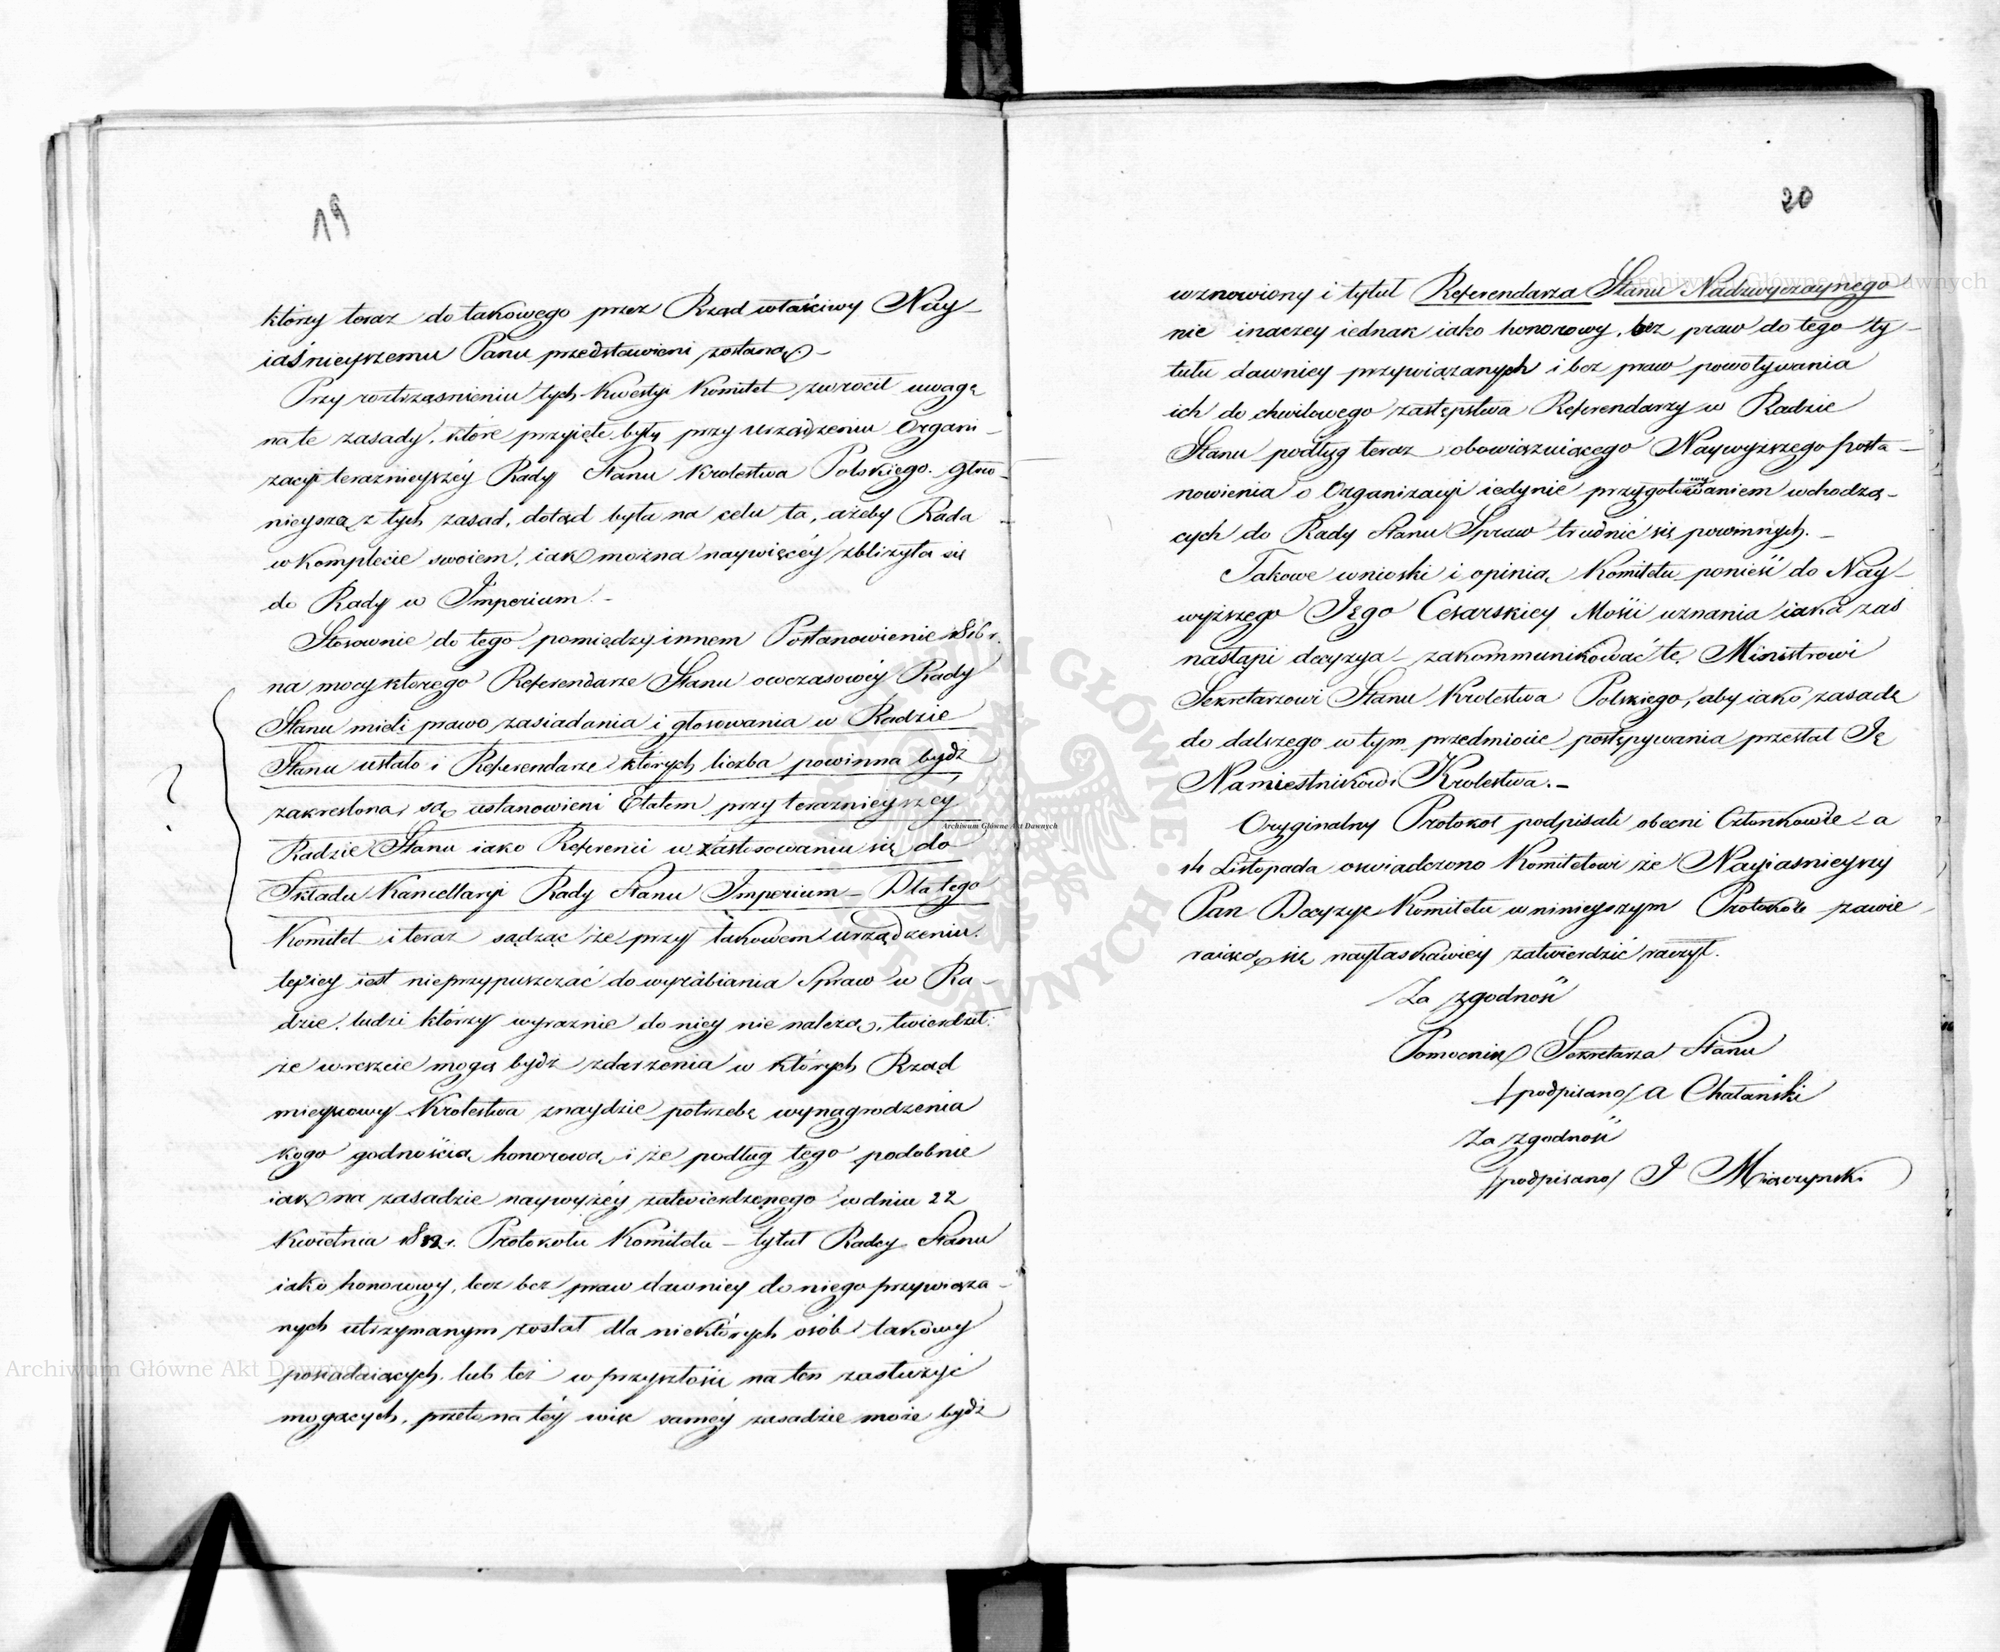 19
którzy teraz do takowego przez Rząd właściwy Nay-
iaśnieyszemu Panu przedstawieni zostaną.-
Przy roztrząsnieniu tych kwestyi Komitet zwrocił uwagę
na te zasady, które przyięte były przy urządzeniu Organi-
zacyi teraznieyszéy Rady Stanu Krolestwa Polskiego. Głow-
nieysza z tych zasad, dotąd była na celu ta, ażeby Rada
w komplecie swoiem, iak można naywięcéy zbliżyła się
do Rady w Imperium.-
Stosownie do tego pomiędzy innem Postanowienie 1816 r.
na mocy którego Referendarze Stanu owczasowéy Rady
Stanu mieli prawo zasiadania i głosowania w Radzie
Stanu ustało i Referendarze których liczba powinna bydź
zakreslona, są ustanowieni Etatem przy teraznieyszéy
Radzie Stanu iako Referenci w zastosowaniu się do
Składu Kancellaryi Rady Stanu Imperium - Dla tego
Komitet i teraz sądząc że przy takowem urządzeniu
lepiey iest nieprzypuszczać do wyrabiania Spraw w Ra-
dzie, ludzi którzy wyraznie do niey nie należą, twierdził:
że wreszcie mogą bydź zdarzenia w których Rząd
mieyscowy Krolestwa znaydzie potrzebę wynagrodzenia
kogo godnością honorową i że podług tego podobnie
iak na zasadzie naywyżéy zatwierdzonego w dniu 22
Kwietnia 1832 r. Protokołu Komitetu - tytuł Radcy Stanu
iako honorowy, lecz bez praw dawniey do niego przywiąza-
nych utrzymanym został dla niektórych osób takowy
posiadaiących, lub też w przyszłości na ten zasłużyć
mogących, przeto na téy więc saméy zasadzie może bydź
20
wznowiony i tytuł Referendarza Stanu Nadzwyczaynego
nie inaczey iednak iako honorowy, bez praw do tego ty-
tułu dawniey przywiązanych i bez praw powoływania
ich do chwilowego zastępstwa Referendarzy w Radzie
Stanu podłyg teraz obowiązuiącego Naywyższego posta-
nowienia o Organizacyi iedynie przygotowywaniem wchodzą-
cych do Rady Stanu Spraw trudnić się powinnych.-
Takowe wnioski i opinią Komitetu ponieść do Nay-
wyższego Jégo Cesarskiey Mości uznania iaka zaś
nastąpi decyzya - zakommunikować tę Ministrowi
Sekretarzowi Stanu Krolestwa Polskiego, aby iako zasadę
do dalszego w tym przedmiocie postępywania przesłał Ją
Namiestnikowi Krolestwa.-
Oryginalny Protokoł podpisali obecni Członkowie - a
14 Listopada oswiadczono Komitetowi że Nayiasnieyszy
Pan Decyzyę Komitetu w ninieyszym Protokole zawie-
raiącą się nayłaskawiey zatwierdzić raczył.
Za zgodność
Pomocnik Sekretarza Stanu
/podpisano/ A Chałański
Za zgodność
/podpisano/ J Miączynski
?
Archiwum Główne Akt Dawnych
Archiwum Główne Akt Dawnych
Archiwum Główne Akt Dawnych
ARCHIWUM GŁÓWNE AKT DAWNYCH